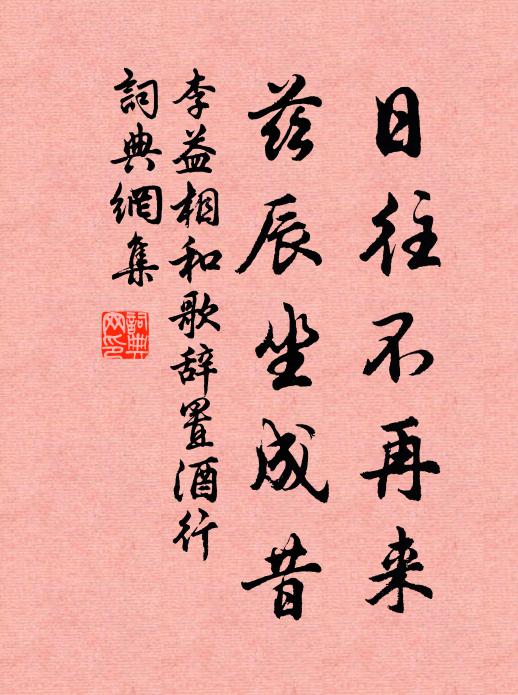 日往不再来
兹辰坐成昔
李益相和歌辞置酒行
詞典網集
詞典网印